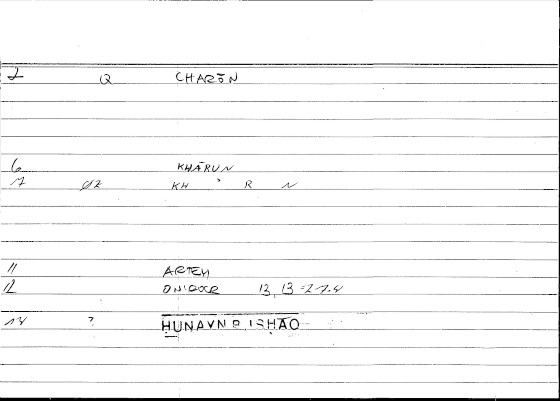 2 Q CHARŌN
6 KHĀRUN
7 ØZ KH ' R N
11 ARTEM
12 13, 13 = 27.4
14 ? ḤUNAYN B. ISḤĀQ